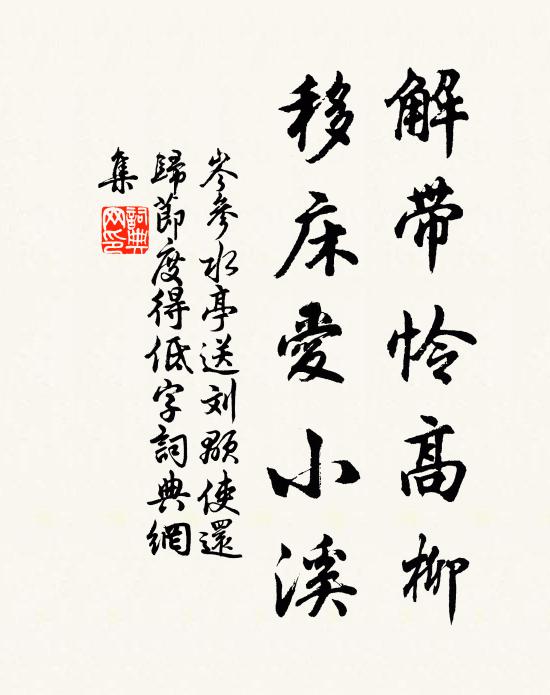 解带怜高柳
移床爱小溪
岑参水亭送刘颙使還
歸節度得低字詞典網
集
詞典网印